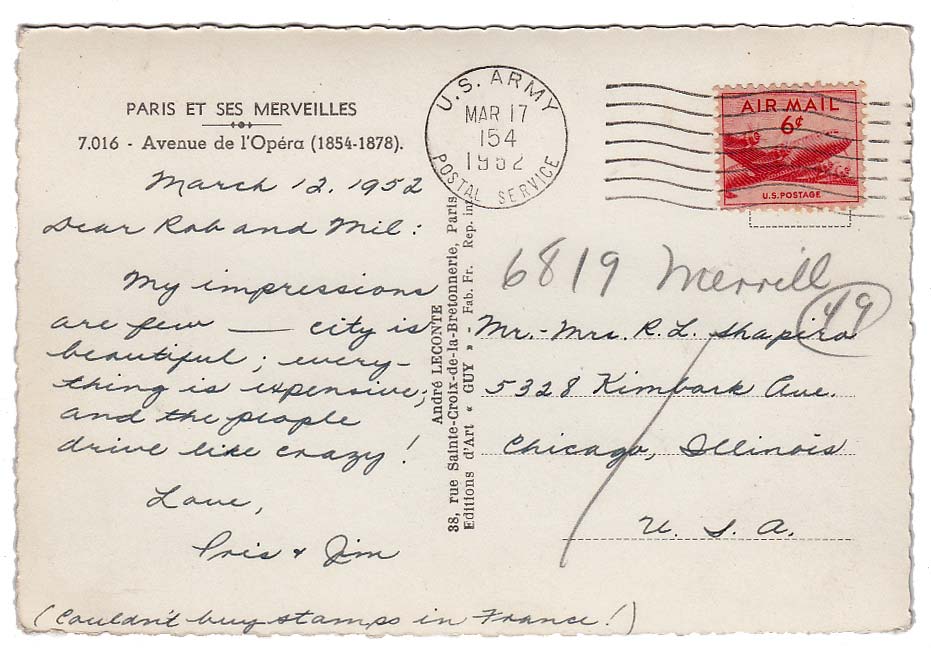 PARIS ET SES MERVEILLES
7.016 - Avenue de l'Opéra (1854-1878).
March 12, 1952
Dear Rob and Mil:
My impressions
are few — city is
beautiful; every-
thing is expensive;
and the people
drive like crazy!
Love,
Pris & Jim
(Couldn't buy stamps in France!)
André LECONTE
38, rue Sainte-Croix-de-la-Bretonnerie, Paris
Editions d'Art « GUY » - Fab. Fr. Rep. in
U.S. ARMY
MAR 17
154
1952
POSTAL SERVICE
AIR MAIL
6¢
U.S. POSTAGE
6819 Merrill
49
Mr. - Mrs. R. L. Shapiro
5328 Kimbark Ave.
Chicago, Illinois
U. S. A.